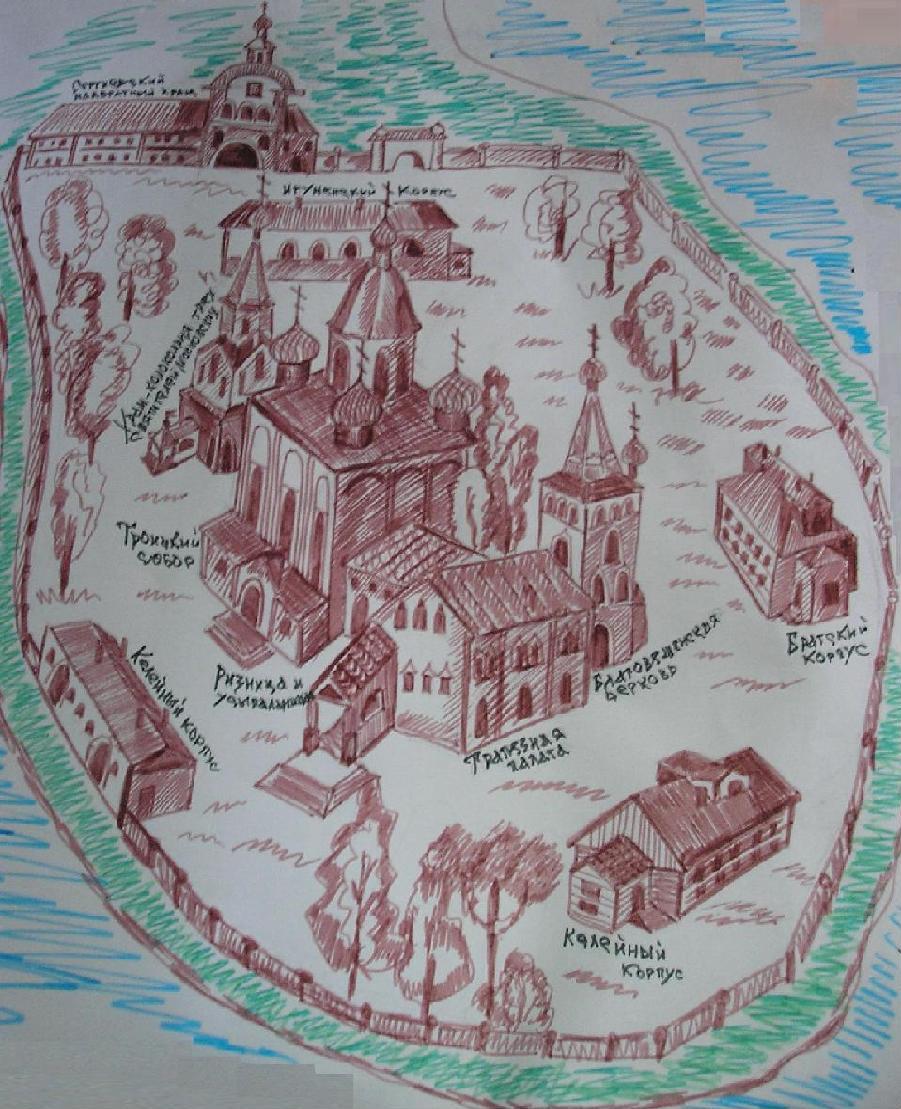 Сергиевский
надвратный храм
игуменский корпус
Храм-колокольня трех
святителей Московских
Троицкий
собор
Келейный корпус
Ризница и
усыпальница
Благовещенская
церковь
Трапезная
палата
Братский
корпус
Келейный
корпус